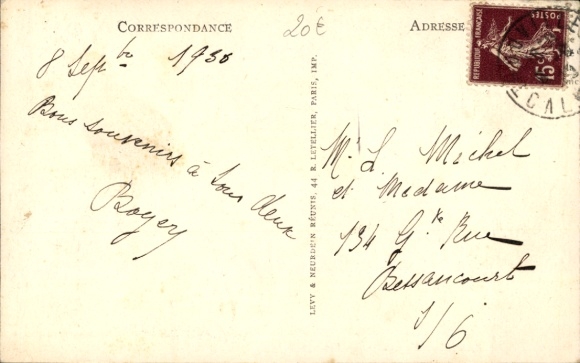 CORRESPONDANCE
20€
ADRESSE
8 Sepbre 1930
Bons souvenirs à tous deux
Boyer
LEVY & NEURDEIN RÉUNIS, 44 R. LETELLIER, PARIS, IMP.
POSTES
RÉPUBLIQUE FRANÇAISE
15c
CAL
M. L. Michel
et Madame
134 Gde Rue
Bessancourt
S/O